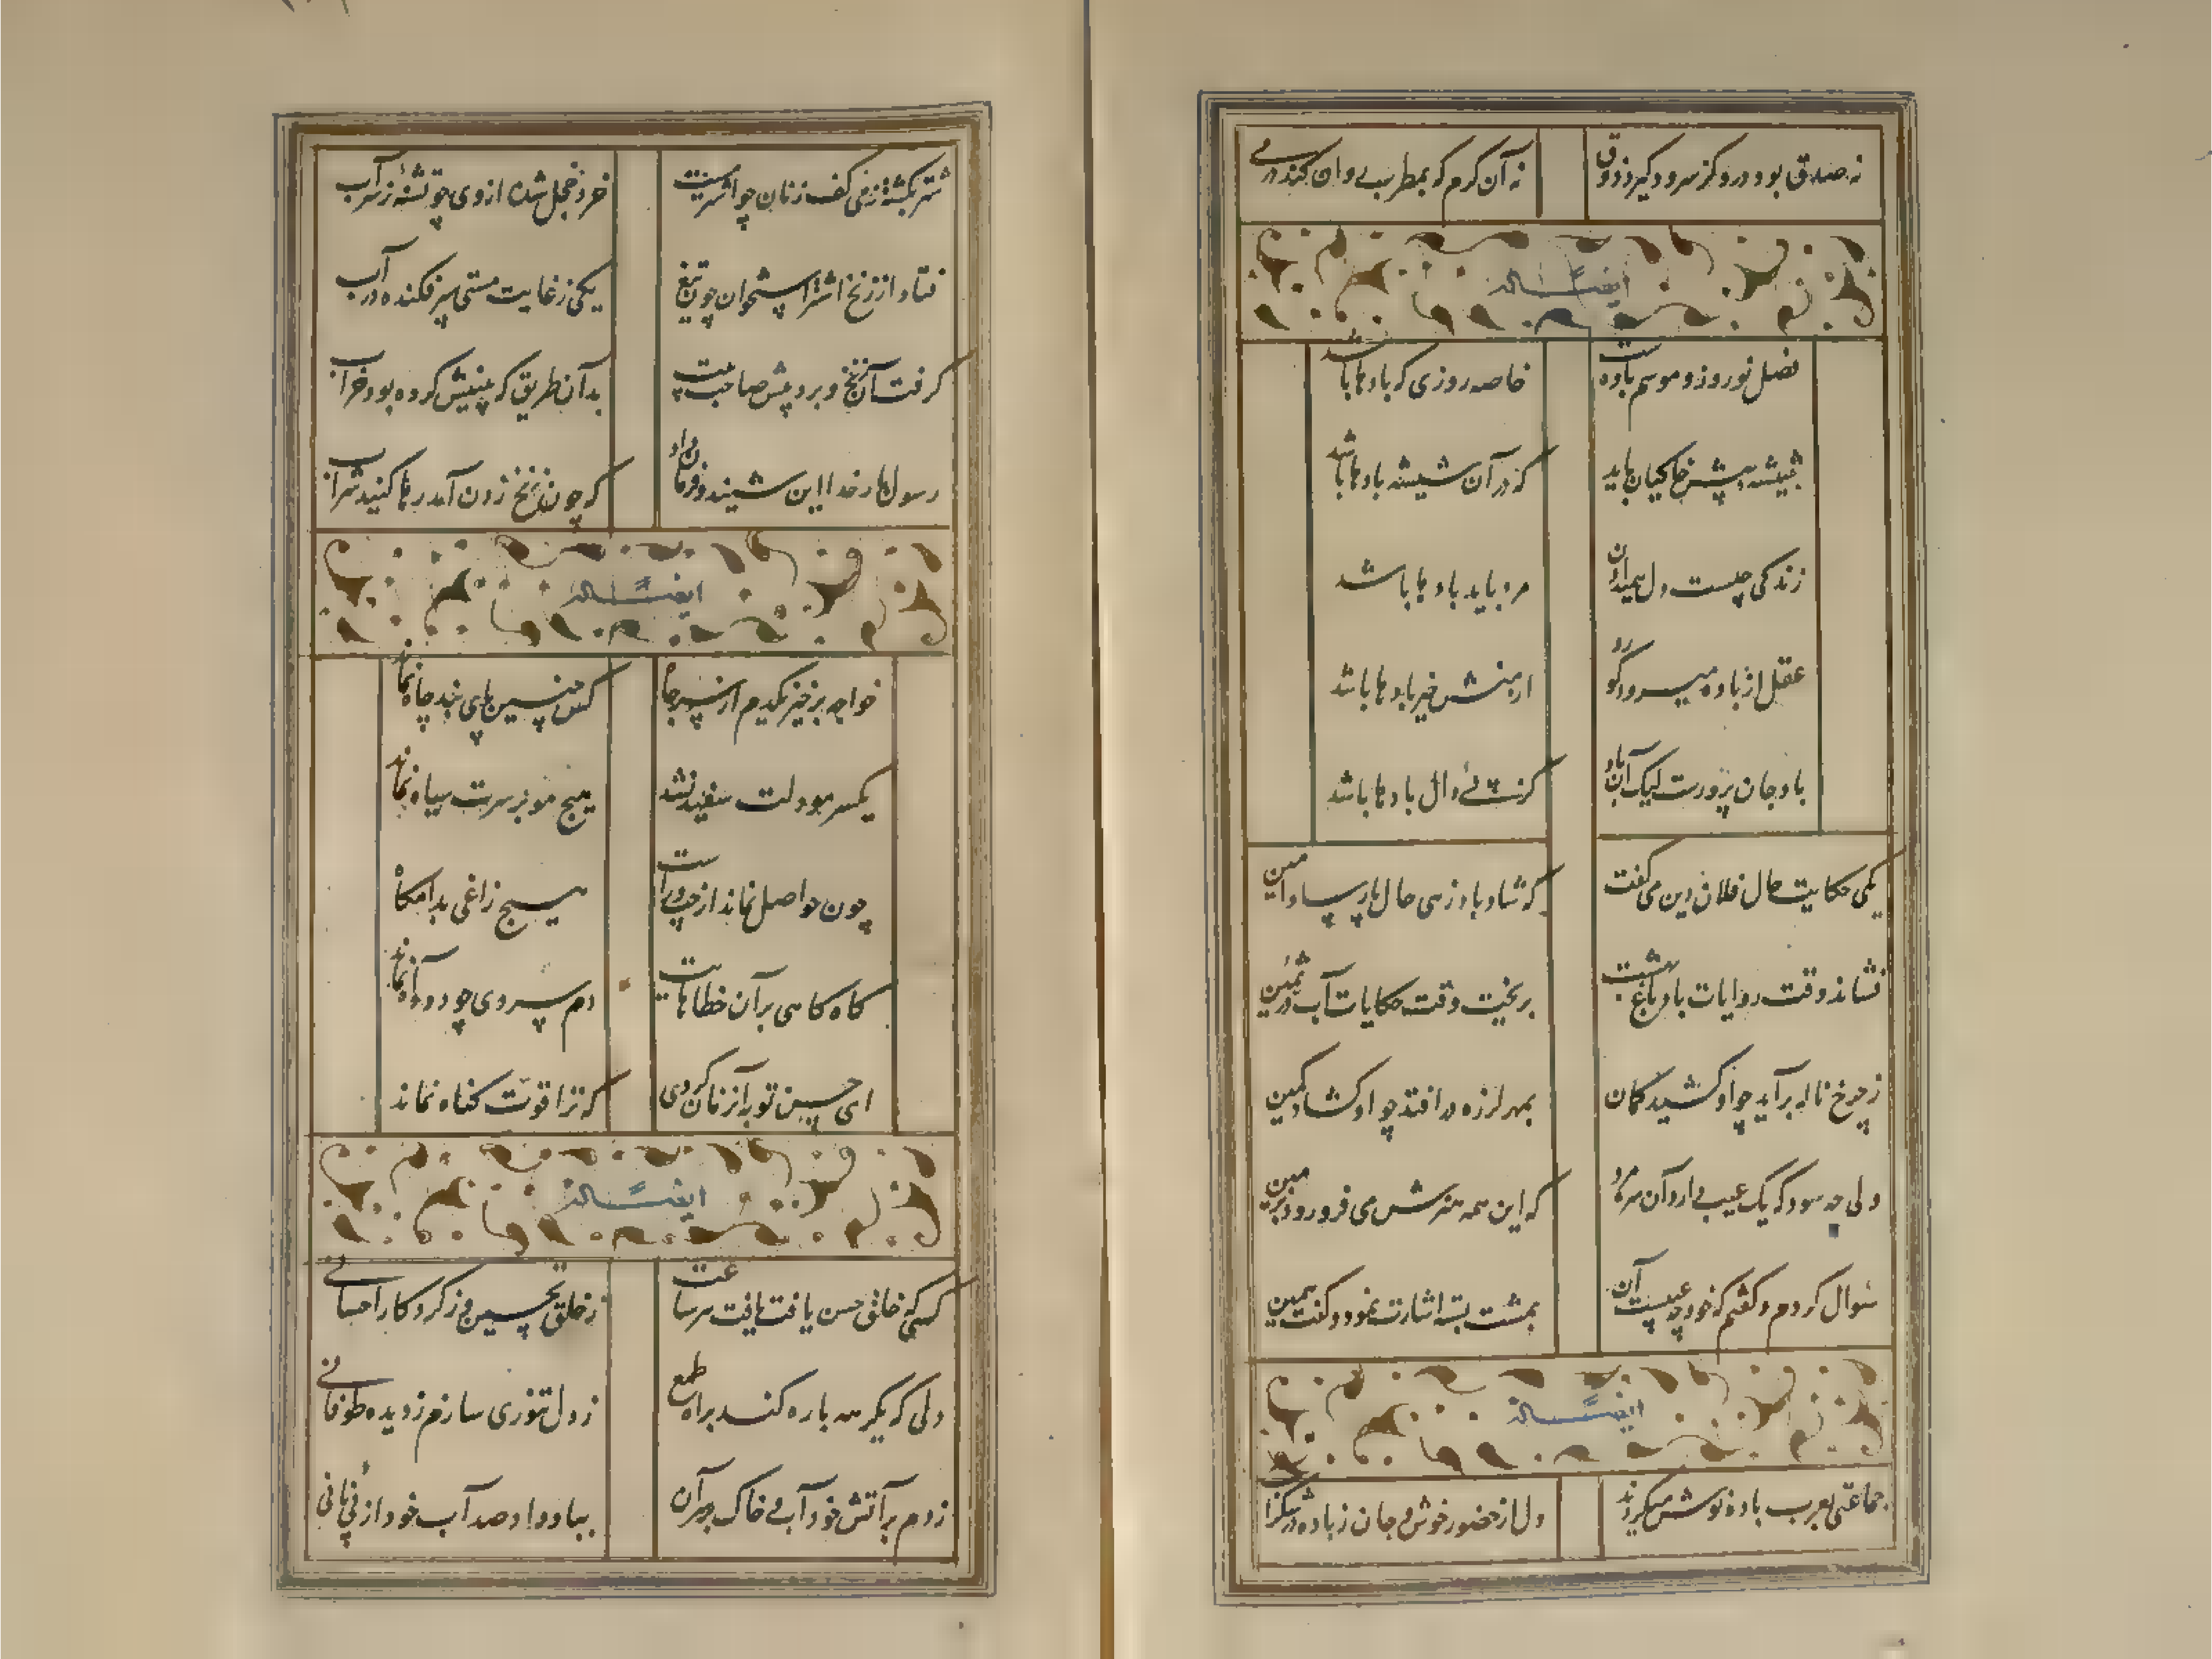 نه صدق بود درو کز سرود گیرد ذوق
نه آن کرم که بمطرب
ایضاً له
فصل نوروز و موسم باده است
خاصه روزی که بادها باشد
شیشه پیش خاکیان باید
که در آن شیشه بادها باشد
زندگی چیست دل همیدان
مرد باید بادها باشد
عقل از باده میرود گو رو
ار منش خیر بادها باشد
باد جان پرورست لیک آن باد
دال بادها باشد
یکی حکایت حال فلان دین می گفت
که شاد باد زهی حال پارسا و امین
فشاند وقت روایات باد باغ بهشت
بریخت وقت حکایات آب در ثمین
ز چرخ ناله برآید چو او کشید کمان
بمهر لرزه در افتد چو او کشاد کمین
ولی چه سود که یک عیب دارد آن سره مرد
که این همه هنرش می فرو رود بزمین
سوال کردم و گفتم که خود چه عیبست آن
بمشت بسته اشارت نمود و گفت همین
ایضاً له
جماعتی بعرب باده نوش میکردند
دل از حضور خوش و جان ز باده در
شتر بکشته ز می کف زنان چو اشتر مست
خرد خجل شده از وی چو تشنه ز سراب
فتاد از زنخ اشتر استخوان چون تیغ
یکی ز غایت مستی سپر فکنده در آب
گرفت آن زنخ و برد پیش صاحب بیت
بدآن طریق که بینیش کرده بود خراب
رسول بار خدا این شنید و فرمان داد
که چون زنخ زدن آمد رها کنید شراب
ایضاً له
خواجه برخیز یکدم از سر جاه
کس چنین پای بند چاه نماند
یکسر مو دلت سفید نشد
هیچ مو بر سرت سیاه نماند
چون حواصل نماند از چپ و راست
هیچ زاغی بدامگاه نماند
گاه گاهی برآن خطاهایت
دم سردی چو دود آه نماند
ای حسین توبه آنزمان کردی
که ترا قوت گناه نماند
ایضاً له
کسی که خلق حسن یافت یافت هر ساعت
ز خلق تحسین وز کردگار احسانی
دلی که یکسر سه باره کند براه طمع
ز دل تنوری سازم ز دیده طوفانی
زدم بر آتش خود آبی خاک بر سر آن
بباد داد و صد آب خود از پی نانی